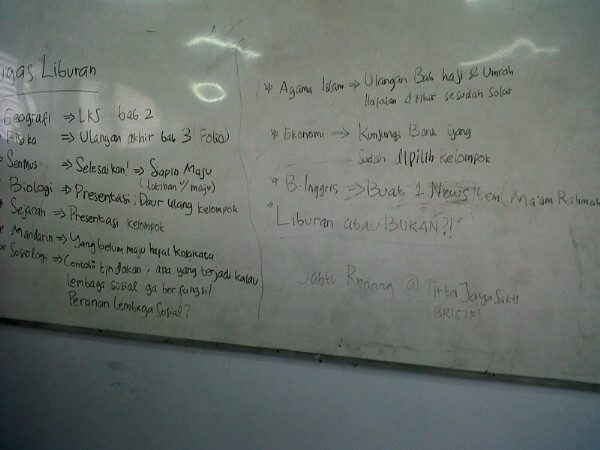 Liburan
Geografi => LKS bab 2
Fisika => Ulangan akhir bab 3 Folio)
Senmus => Selesaikan! => Sapin Maju
(latihan maju)
Biologi => Presentasi ; Daur ulang kelompok
* Sejarah => Presentasi kelompok
* Mandarin => Yang belum maju hafal kosakata
* Sosiologi => Contoh tindakan ; apa yang terjadi kalau
lembaga sosial ga berfungsi!
Peranan lembaga sosial?
* Agama Islam => Ulangan Bab haji & Umroh
Hafalan dzikir sesudah solat
* Ekonomi => Kunjungi Bank yang
sudah dipilih kelompok
* B. Inggris => Buat 1 News Item (Ma'am Rahma
"Liburan atau BUKAN?!"
Sabtu Renang @ Tirta Jaya Sakti
BRIGIF!